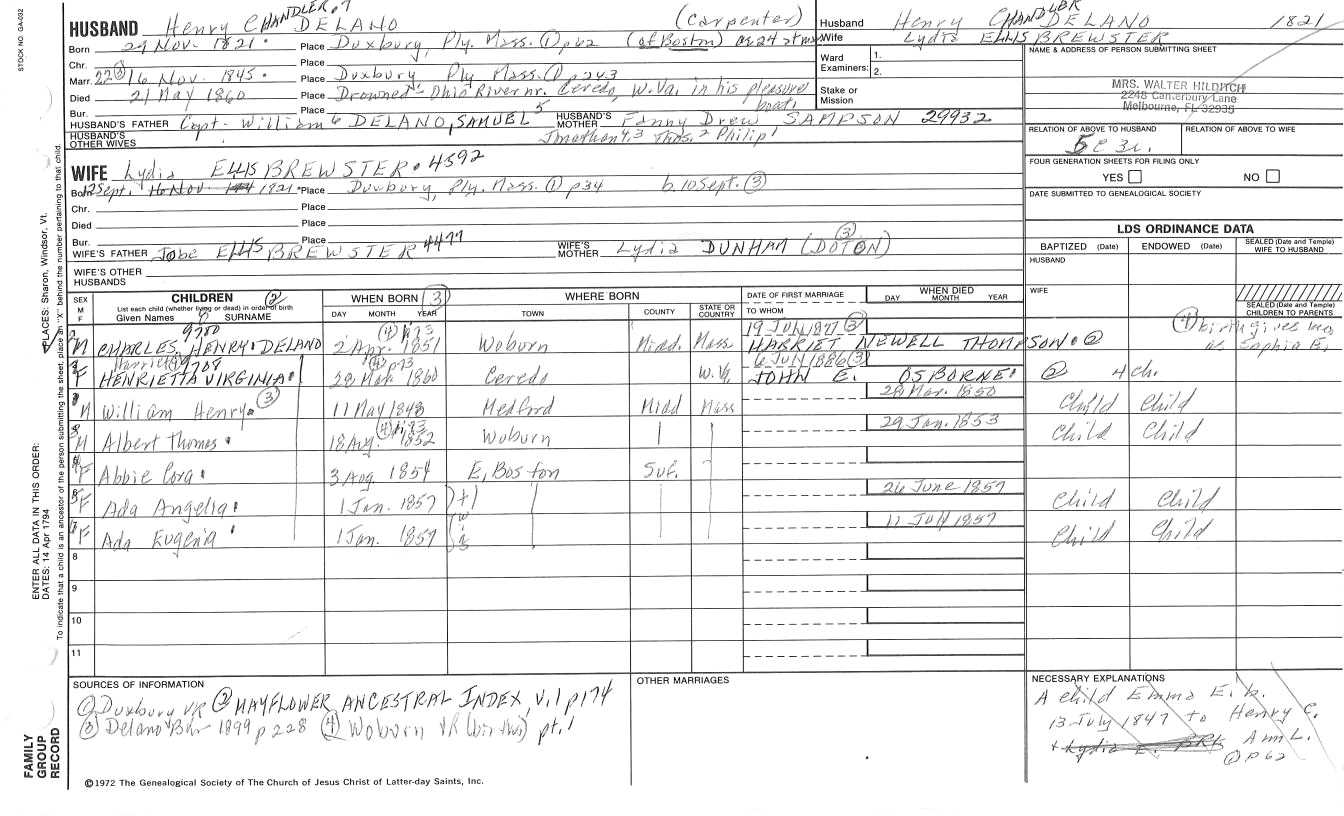 STOCK NO. GA-032
HUSBAND Henry CHANDLER.7 DELANO (Carpenter)
Born 29 Nov. 1821. Place Duxbury, Ply. Mass. ① p62 (of Boston) ae 24 at m
Chr. Place
Marr. 22 ③ 16 Nov. 1845. Place Duxbury Ply Mass. ① p243
Died 21 May 1860 Place Drowned - Ohio River nr. Ceredo, W. Va. in his pleasure boat.
Bur. Place
HUSBAND'S FATHER Capt. William 6 DELANO, SAMUEL 5 HUSBAND'S MOTHER Fanny Drew SAMPSON 29932
HUSBAND'S OTHER WIVES Jonathan 4,3 Thos. 2 Philip 1
Husband Henry CHANDLER DELANO 1821
Wife Lydia ELLIS BREWSTER
Ward 1.
Examiners: 2.
Stake or Mission
NAME & ADDRESS OF PERSON SUBMITTING SHEET
MRS. WALTER HILDITCH
2248 Canterbury Lane
Melbourne, FL 32935
RELATION OF ABOVE TO HUSBAND RELATION OF ABOVE TO WIFE
FOUR GENERATION SHEETS FOR FILING ONLY
YES NO
DATE SUBMITTED TO GENEALOGICAL SOCIETY
WIFE Lydia ELLIS BREWSTER. 4592
Born 12 Sept. 16 Nov. 1821. Place Duxbury, Ply. Mass. ① p34 b. 10 Sept. ③
Chr. Place
Died Place
Bur. Place
WIFE'S FATHER Jobe ELLIS BREWSTER 4477 WIFE'S MOTHER Lydia DUNHAM (DOTON) ③
WIFE'S OTHER HUSBANDS
LDS ORDINANCE DATA
BAPTIZED (Date) ENDOWED (Date) SEALED (Date and Temple) WIFE TO HUSBAND
HUSBAND
WIFE
SEALED (Date and Temple) CHILDREN TO PARENTS
SEX M F CHILDREN ② WHEN BORN ③ WHERE BORN DATE OF FIRST MARRIAGE WHEN DIED
List each child (whether living or dead) in order of birth
Given Names 8 SURNAME DAY MONTH YEAR TOWN COUNTY STATE OR COUNTRY TO WHOM DAY MONTH YEAR
9780 ④ p173 19 July 1877 ③ ④ birth gives mo. as Sophia E.
M CHARLES HENRY. DELANO 2 Apr. 1851 Woburn Midd. Mass HARRIET NEWELL THOMPSON. ②
Harriet ④ 9788 ④ p73 6 July 1886 ③
F HENRIETTA VIRGINIA. 28 Mar. 1860 Ceredo W. Va. JOHN E. OSBORNE. ② 4 ch.
M William Henry. ③ 11 May 1848 Medford Midd Mass 28 Mar. 1850 Child Child
M Albert Thomas. 18 Aug ④ p173 1852 Woburn 29 Jan. 1853 Child Child
F Abbie Cora. 3 Aug. 1854 E. Boston Suf.
F Ada Angelia. 1 Jan. 1857 twin 26 June 1857 Child Child
F Ada Eugenia. 1 Jan. 1857 11 July 1857 Child Child
8
9
10
11
SOURCES OF INFORMATION
① Duxbury VR ② MAYFLOWER ANCESTRAL INDEX, V. 1 p174
③ Delano 1899 p228 ④ Woburn VR (births) pt. 1
OTHER MARRIAGES
NECESSARY EXPLANATIONS
A child Emma E. b.
13 July 1847 to Henry C.
+ Lydia E. Ann L.
① p62
©1972 The Genealogical Society of The Church of Jesus Christ of Latter-day Saints, Inc.
FAMILY GROUP RECORD
ENTER ALL DATA IN THIS ORDER:
DATES: 14 Apr 1794
PLACES: Sharon, Windsor, Vt.
To indicate that a child is an ancestor of the person submitting the sheet, place an "X" behind the number pertaining to that child.